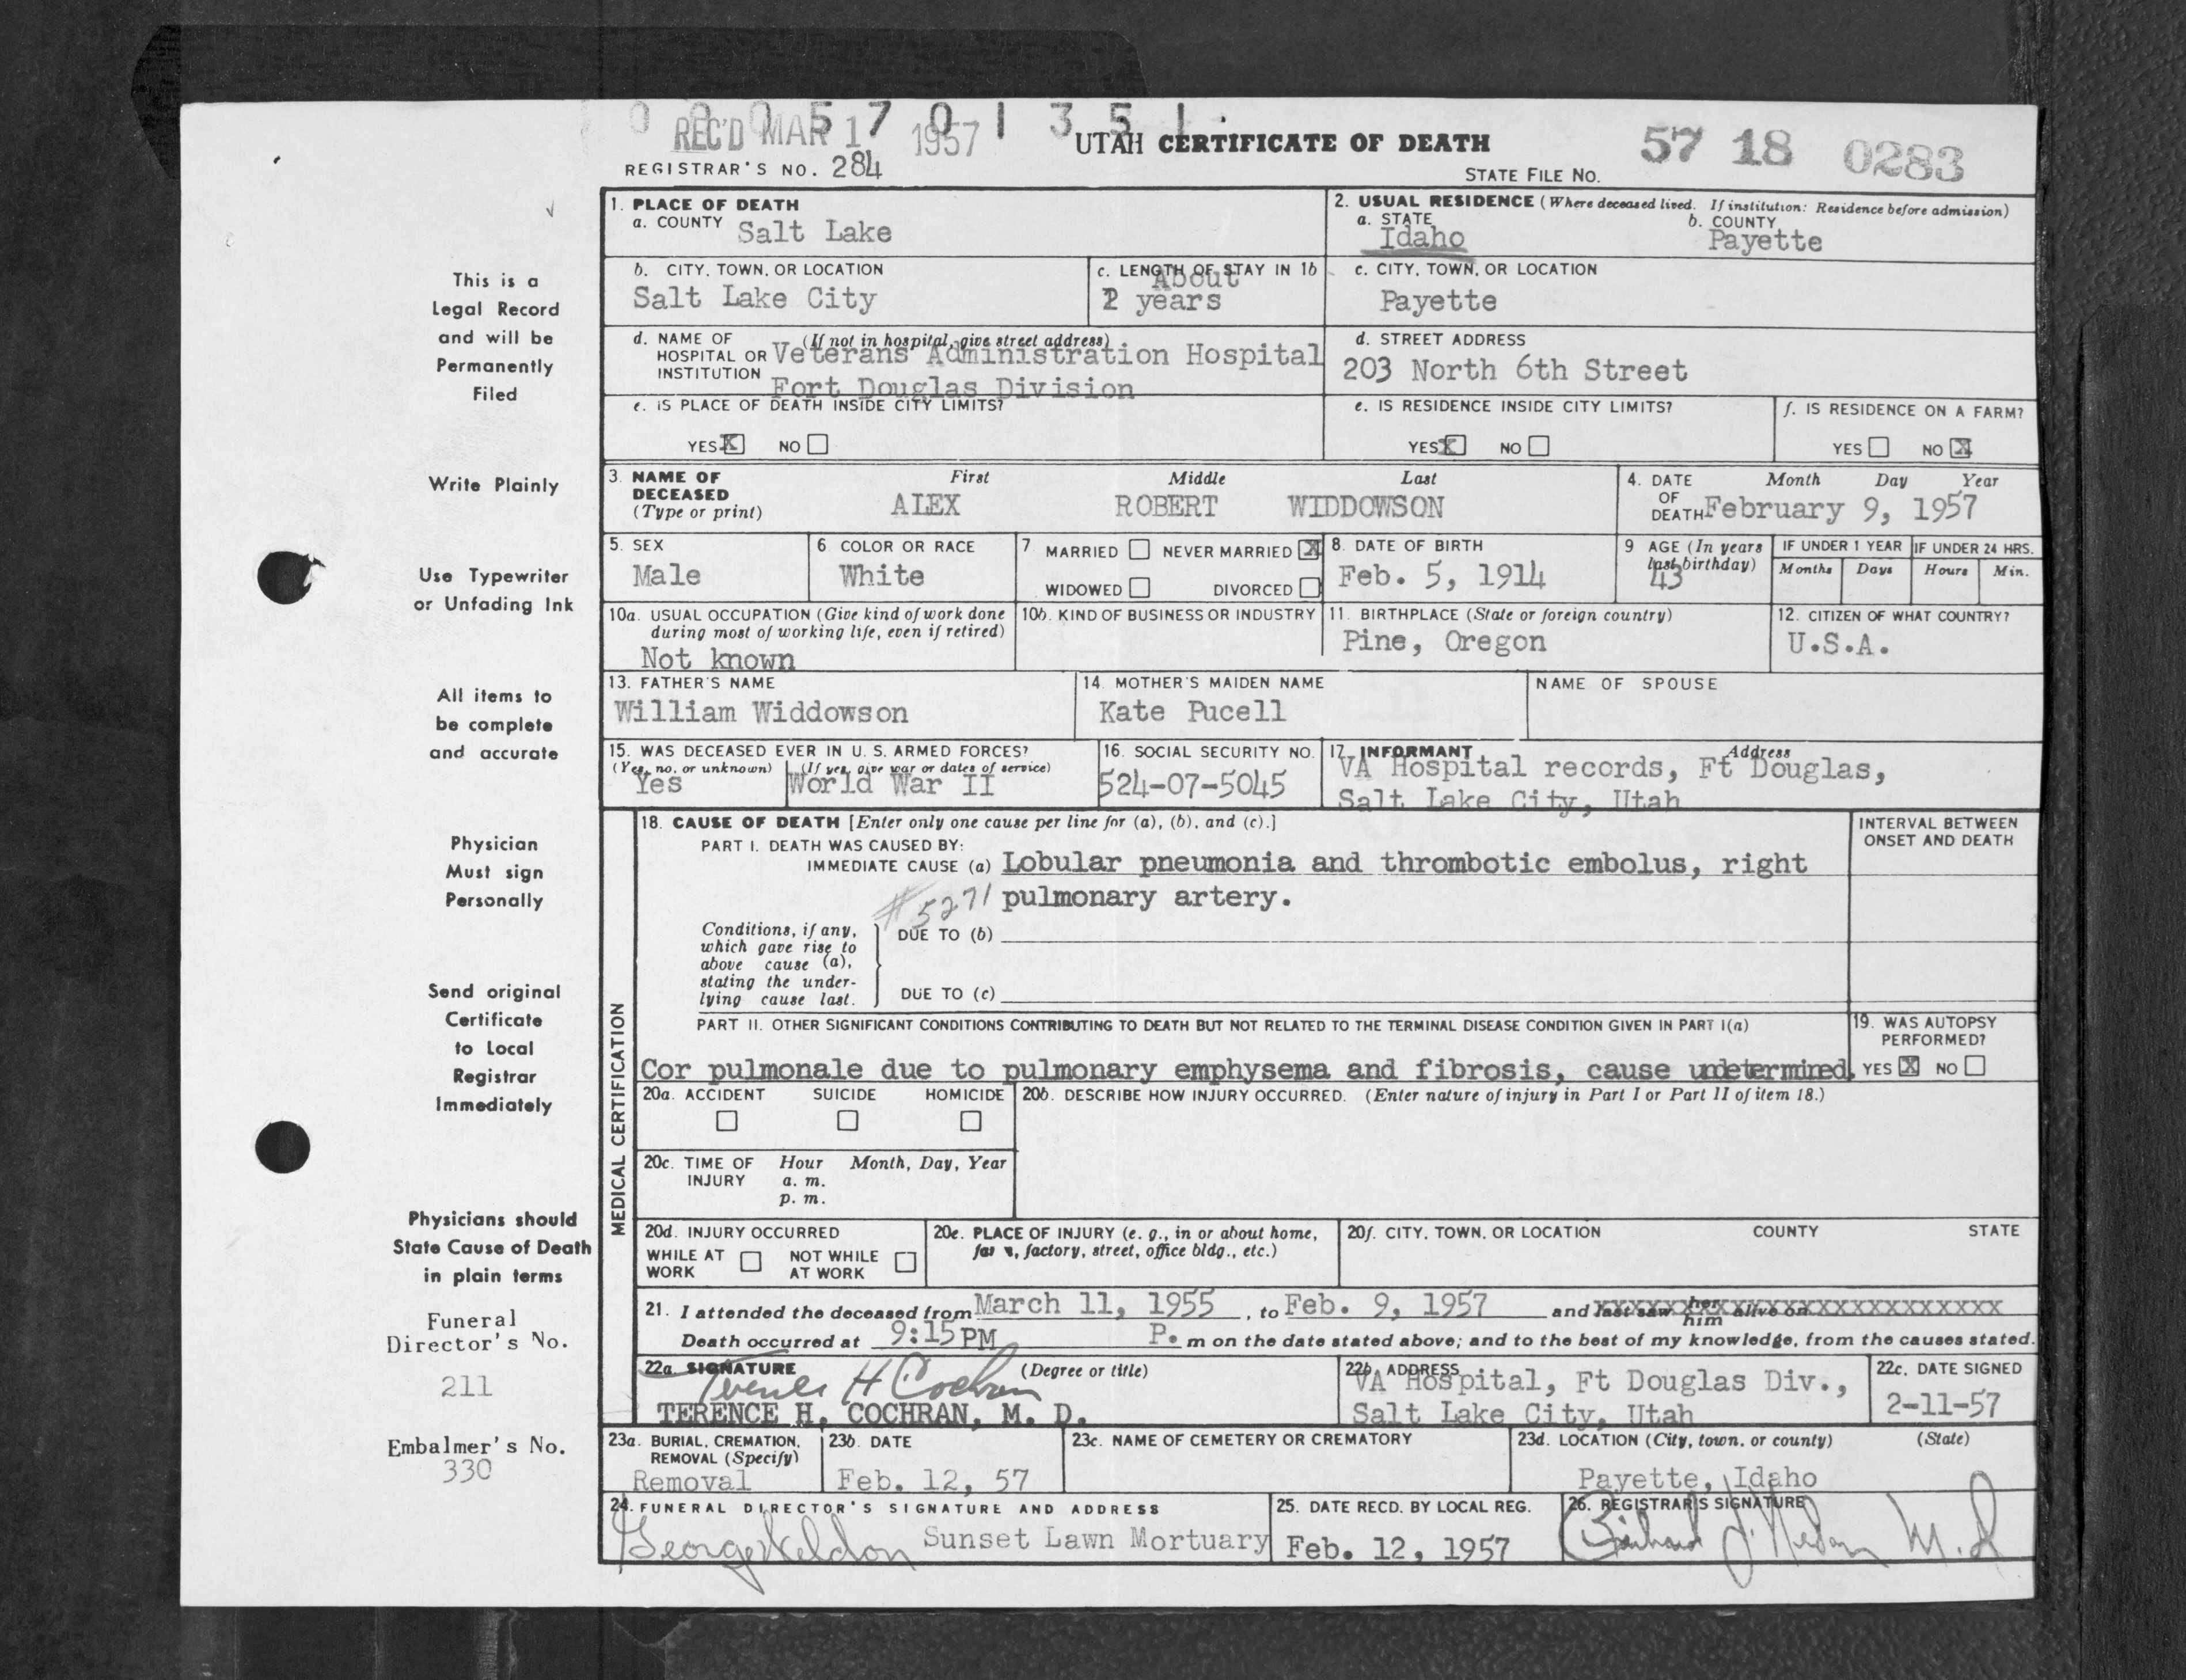 0 0 0 5 7 0 1 3 5 1
REC'D MAR 1 1957
UTAH CERTIFICATE OF DEATH
57 18 0283
REGISTRAR'S NO. 284
STATE FILE No.
1. PLACE OF DEATH
a. COUNTY Salt Lake
2. USUAL RESIDENCE (Where deceased lived. If institution: Residence before admission)
a. STATE Idaho
b. COUNTY Payette
b. CITY, TOWN, OR LOCATION
Salt Lake City
c. LENGTH OF STAY IN 1b
About
2 years
c. CITY, TOWN, OR LOCATION
Payette
d. NAME OF HOSPITAL OR INSTITUTION (If not in hospital, give street address)
Veterans Administration Hospital
Fort Douglas Division
d. STREET ADDRESS
203 North 6th Street
e. IS PLACE OF DEATH INSIDE CITY LIMITS?
YES X NO
e. IS RESIDENCE INSIDE CITY LIMITS?
YES X NO
f. IS RESIDENCE ON A FARM?
YES NO X
3. NAME OF DECEASED (Type or print)
First Middle Last
ALEX ROBERT WIDDOWSON
4. DATE OF DEATH Month Day Year
February 9, 1957
5. SEX
Male
6 COLOR OR RACE
White
7 MARRIED NEVER MARRIED X
WIDOWED DIVORCED
8. DATE OF BIRTH
Feb. 5, 1914
9 AGE (In years last birthday)
43
IF UNDER 1 YEAR
Months Days
IF UNDER 24 HRS.
Hours Min.
10a. USUAL OCCUPATION (Give kind of work done during most of working life, even if retired)
Not known
10b. KIND OF BUSINESS OR INDUSTRY
11. BIRTHPLACE (State or foreign country)
Pine, Oregon
12. CITIZEN OF WHAT COUNTRY?
U.S.A.
13. FATHER'S NAME
William Widdowson
14. MOTHER'S MAIDEN NAME
Kate Pucell
NAME OF SPOUSE
15. WAS DECEASED EVER IN U. S. ARMED FORCES?
(Yes, no, or unknown) (If yes, give war or dates of service)
Yes World War II
16. SOCIAL SECURITY NO.
524-07-5045
17. INFORMANT Address
VA Hospital records, Ft Douglas,
Salt Lake City, Utah
MEDICAL CERTIFICATION
18. CAUSE OF DEATH [Enter only one cause per line for (a), (b), and (c).]
INTERVAL BETWEEN ONSET AND DEATH
PART I. DEATH WAS CAUSED BY:
IMMEDIATE CAUSE (a) Lobular pneumonia and thrombotic embolus, right
#5271 pulmonary artery.
Conditions, if any, which gave rise to above cause (a), stating the underlying cause last.
DUE TO (b)
DUE TO (c)
PART II. OTHER SIGNIFICANT CONDITIONS CONTRIBUTING TO DEATH BUT NOT RELATED TO THE TERMINAL DISEASE CONDITION GIVEN IN PART I(a)
Cor pulmonale due to pulmonary emphysema and fibrosis, cause undetermined.
19. WAS AUTOPSY PERFORMED?
YES X NO
20a. ACCIDENT SUICIDE HOMICIDE
20b. DESCRIBE HOW INJURY OCCURRED. (Enter nature of injury in Part I or Part II of item 18.)
20c. TIME OF INJURY Hour Month, Day, Year
a. m.
p. m.
20d. INJURY OCCURRED
WHILE AT WORK NOT WHILE AT WORK
20e. PLACE OF INJURY (e. g., in or about home, farm, factory, street, office bldg., etc.)
20f. CITY, TOWN, OR LOCATION COUNTY STATE
21. I attended the deceased from March 11, 1955, to Feb. 9, 1957 and last saw her him alive on XXXXXXXXXXXXXXXXXXXXXXXX
Death occurred at 9:15 PM P. m on the date stated above; and to the best of my knowledge, from the causes stated.
22a. SIGNATURE (Degree or title)
Terence H Cochran
TERENCE H. COCHRAN, M. D.
22b. ADDRESS
VA Hospital, Ft Douglas Div.,
Salt Lake City, Utah
22c. DATE SIGNED
2-11-57
23a. BURIAL, CREMATION, REMOVAL (Specify)
Removal
23b. DATE
Feb. 12, 57
23c. NAME OF CEMETERY OR CREMATORY
23d. LOCATION (City, town, or county) (State)
Payette, Idaho
24. FUNERAL DIRECTOR'S SIGNATURE AND ADDRESS
Sunset Lawn Mortuary
25. DATE RECD. BY LOCAL REG.
Feb. 12, 1957
26. REGISTRAR'S SIGNATURE
M.D
This is a
Legal Record
and will be
Permanently
Filed
Write Plainly
Use Typewriter
or Unfading Ink
All items to
be complete
and accurate
Physician
Must sign
Personally
Send original
Certificate
to Local
Registrar
Immediately
Physicians should
State Cause of Death
in plain terms
Funeral
Director's No.
211
Embalmer's No.
330